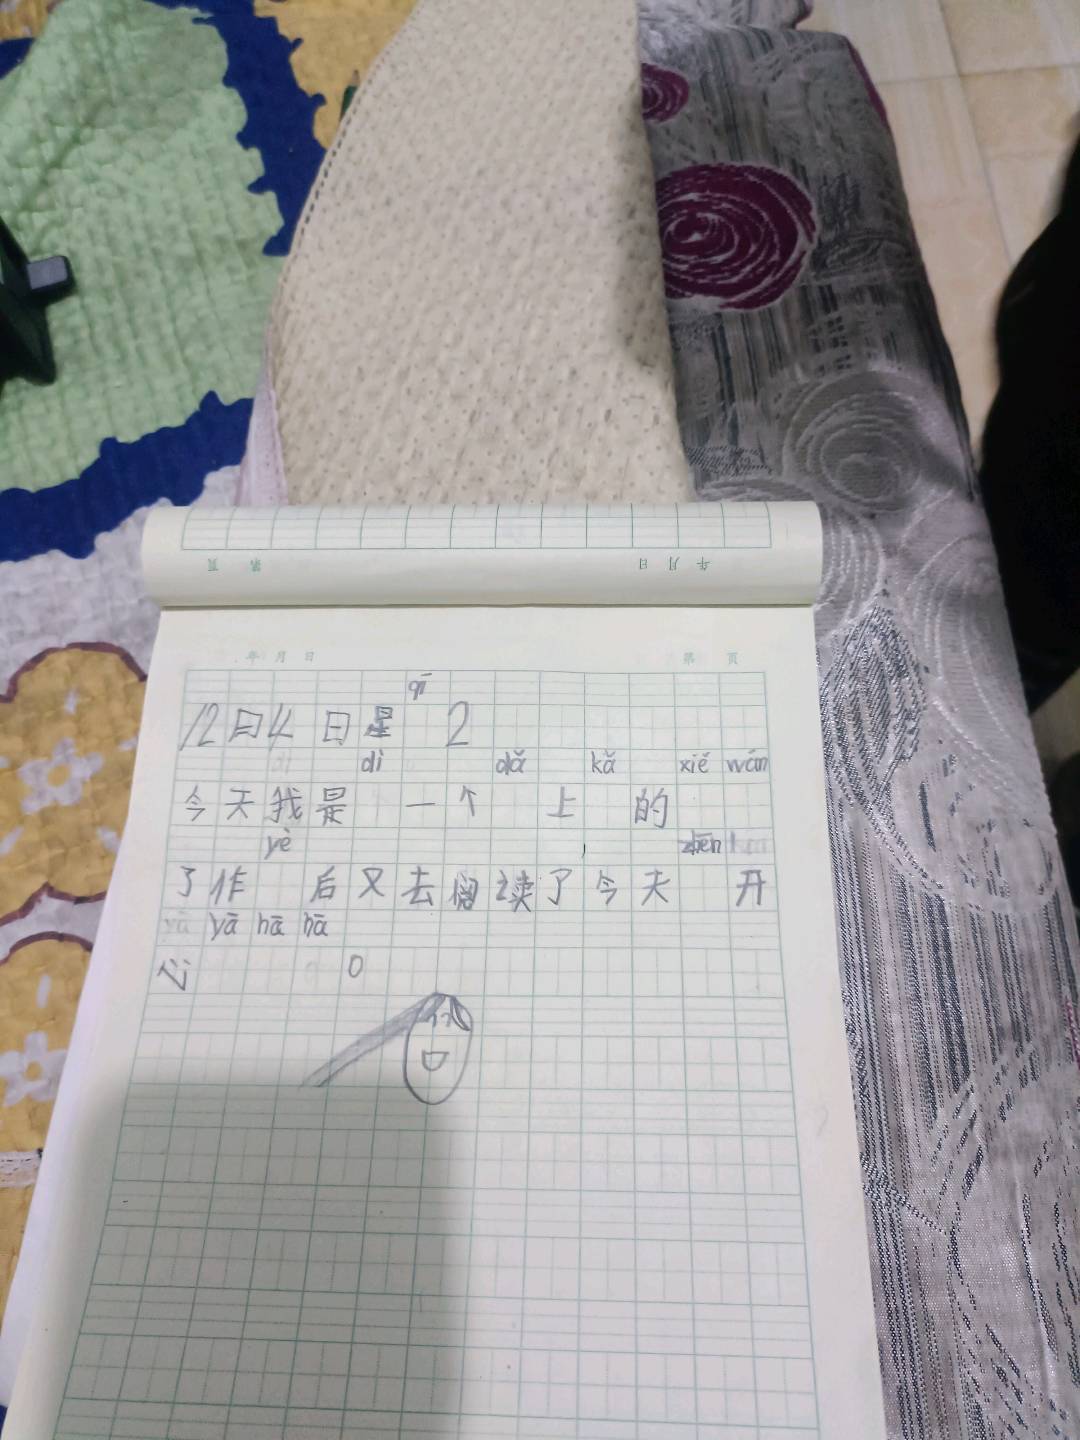 年 月 日 第 页
年 月 日 第 页
qī
12日4日星 2
dì dǎ kǎ xiě wán
今天我是 一个 上 的
yè zhēn
了作 后又去阅读了今天 开
yā hā hā
心